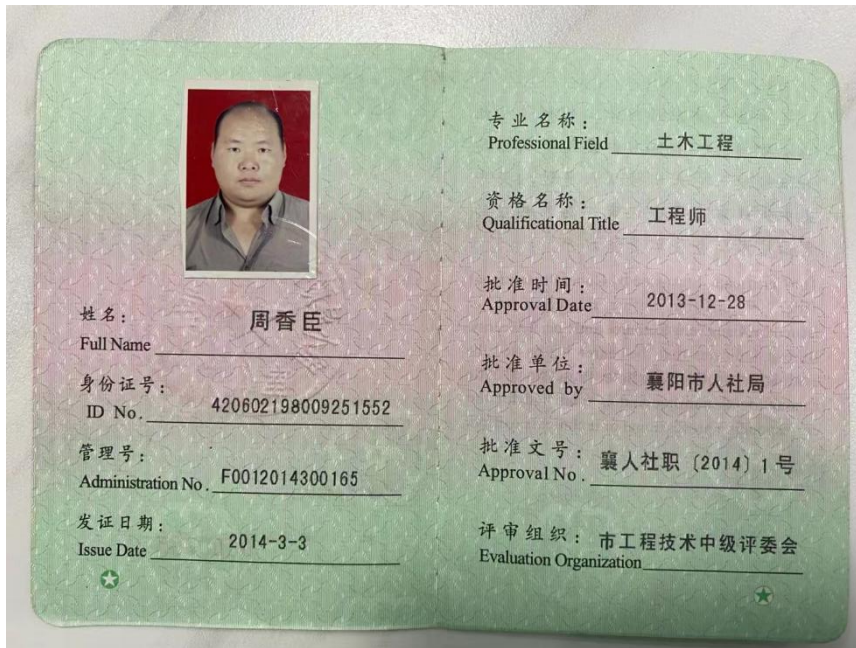 姓名：
周香臣
Full Name
身份证号：
ID No. 420602198009251552
管理号：
Administration No. F0012014300165
发证日期：
Issue Date 2014-3-3
专业名称：
Professional Field 土木工程
资格名称：
Qualificational Title 工程师
批准时间：
Approval Date 2013-12-28
批准单位：
Approved by 襄阳市人社局
批准文号：
Approval No. 襄人社职〔2014〕1号
评审组织：市工程技术中级评委会
Evaluation Organization